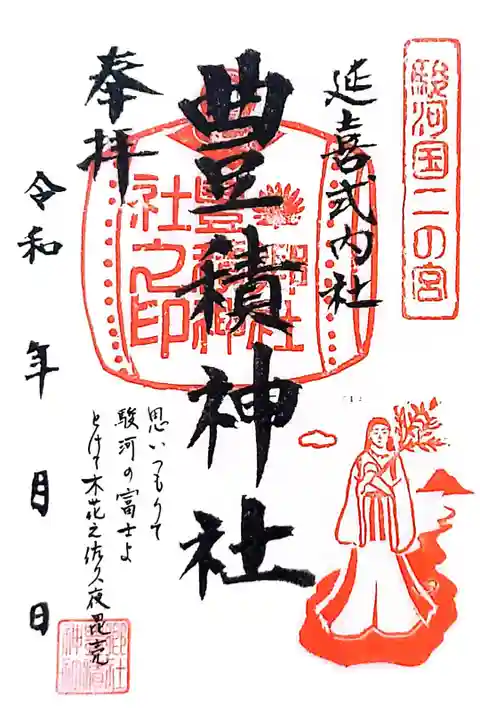 駿河国二の宮
延喜式内社
豊積神社
奉拝
令和 年 月 日
思いつもりて
駿河の富士よ
とけて木花之佐久夜毘売
豊積神社之印